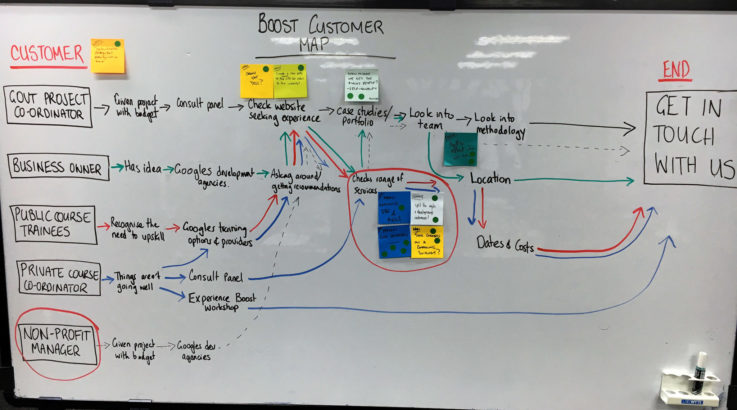 BOOST CUSTOMER
MAP
CUSTOMER
END
GOVT PROJECT
CO-ORDINATOR
Given project
with budget
Consult panel
Check website
seeking experience
Case studies/
portfolio
Look into
team
Look into
methodology
GET IN
TOUCH
WITH US
BUSINESS OWNER
Has idea
Googles development
agencies.
Asking around/
getting recommendations
Checks range of
services
Location
PUBLIC COURSE
TRAINEES
Recognise the
need to upskill
Googles training
options & providers
Dates & Costs
PRIVATE COURSE
CO-ORDINATOR
Things aren't
going well
Consult Panel
Experience Boost
Workshop
NON-PROFIT
MANAGER
Given project
with budget
Googles dev
agencies